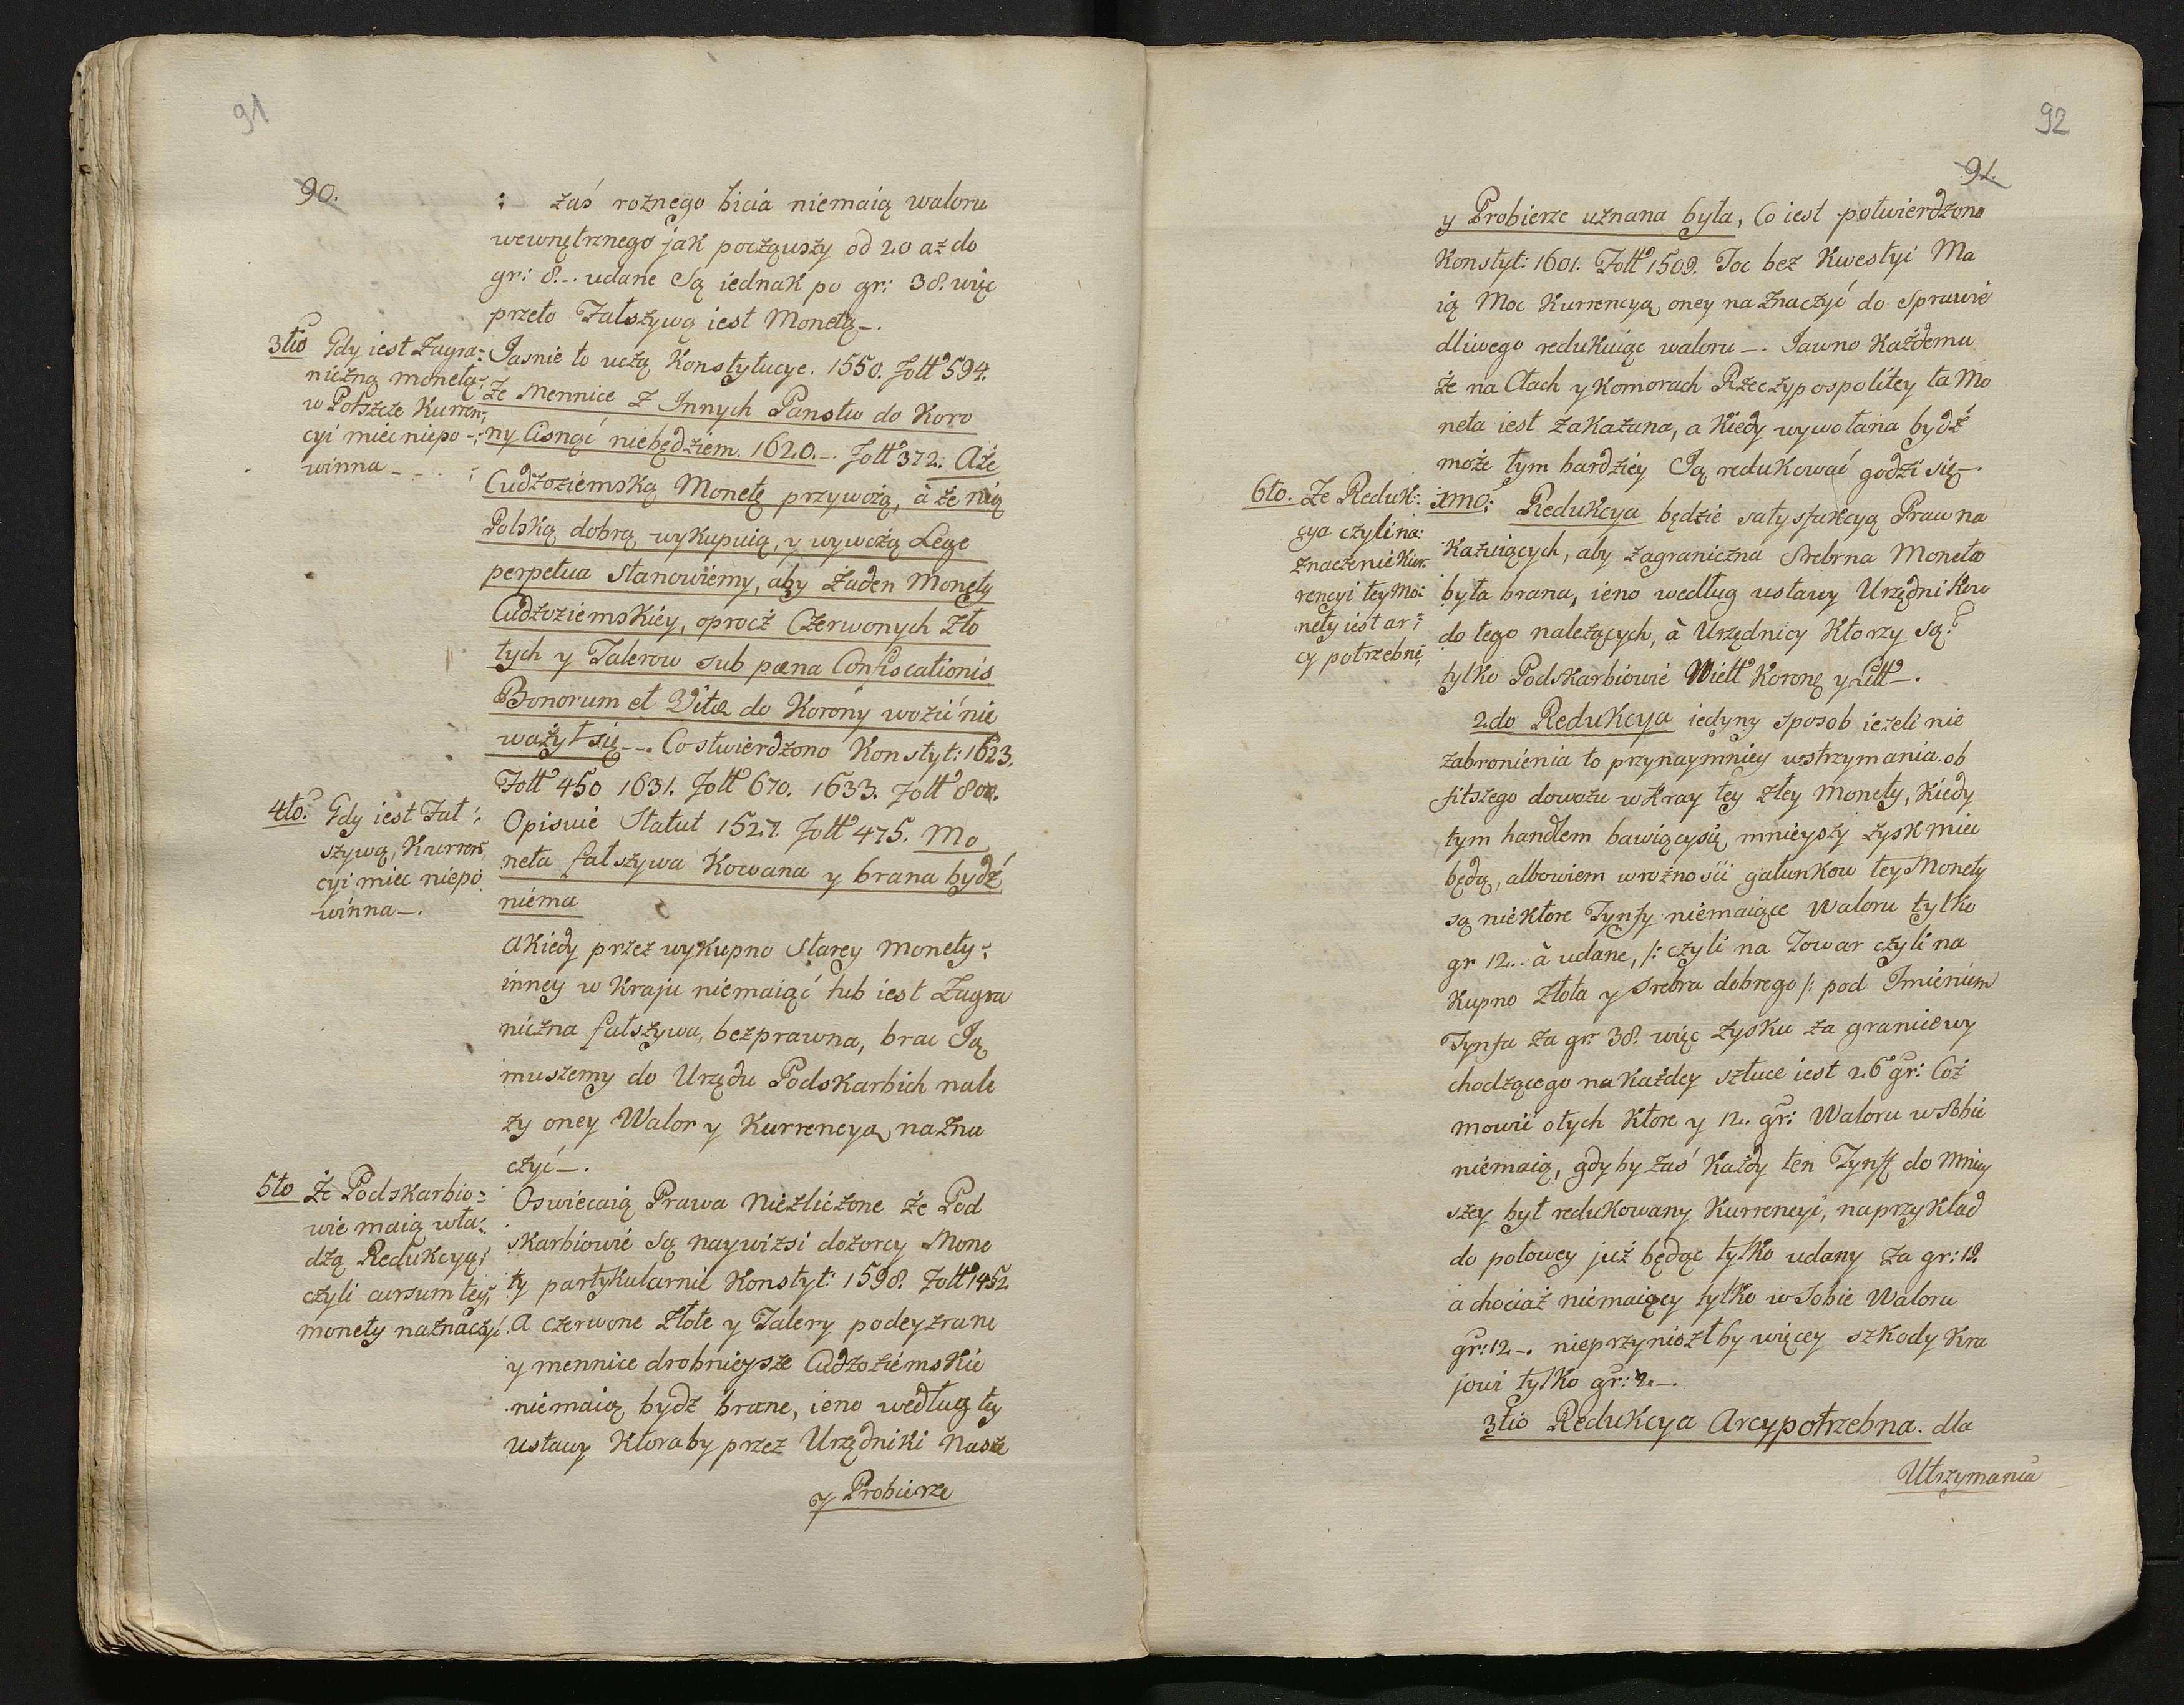 91
90.
: zaś rożnego bicia niemaią waloru
wewnętrznego jak począwszy od 20 aż do
gr: 8._ udane Są iednak po gr: 38. więc
przeto Fałszywą iest Monetą_.
3tio Gdy iest Zagra:
niczną monetą:
w Polszcze Kurren:
cyi miec niepo-:
winna_ _ _
Jasnie to uczą Konstytucye. 1550. foll 594.
Ze Mennice z Innych Panstw do Koro
ny Ciongć niebędziem. 1620._. foll 372. Aże
Cudzoziemską Monetę przywożą, à że nią
Polską dobrą wykupuią, y wywożą Lege
perpetua Stanowiemy, aby żaden Monety
Cudzoziemskiey, oprocż Czerwonych Zło
tych y Talerow sub pæna Confiscationis
Bonorum et Vitæ do Korony wozić nie
ważył się_ _. Co stwierdzono Konstyt: 1623.
Foll 450 1631. foll 670. 1633. foll 80
4to. Gdy iest Fał:
szywą, Kurren
cyi miec niepo
winna_.
Opisuie Statut 1527. foll 475. Mo
neta fałszywa Kowana y brana bydź
niema
A kiedy przez wykupno Starey monety:
inney w Kraju niemaiąć lub iest Zagra
niczna fałszywa, bezprawna, brac Ją
muszemy do Urzędu Podskarbich nale
ży oney Walor y Kurrencyą nazna
czyć_.
5to Że Podskarbio:
wie maią wła:
dzą Redukcyą:
czyli cursum tey
monety naznaczyć.
Oswiecaią Prawa Niezliczone że Pod
skarbiowie Są naywiżsi dozorcy Mone
ty partykularnie Konstyt: 1598. foll 1452
A czerwone Złote y Talery podeyzrane
y mennice drobnieysze Cudzoziemskie
niemaią bydz brane, ieno według tey
ustawy Ktoraby przez Urzędniki Nasze
y Probierze
92
91.
y Probierze uznana była, Co iest potwierdzono
Konstyt: 1601. Foll 1509. Toc bez Kwestyi Ma
ią Moc Kurrencyą oney naznaczyć do Sprawie
dliwego redukuiąc waloru_. Jawno Każdemu
że na Cłach y Komorach Rzeczypospolitey ta Mo
neta iest zakazana, a Kiedy wywołana bydź
może tym bardziey Ją redukować godzi się_.
6to. Ze Reduk:
cya czyli na:
znaczenie Kur:
rencyi tey Mo:
nety iest ar:
cy potrzebne
1mo: Redukcya będzie satysfakcyą Praw na
Kazuiących, aby zagraniczna Srebrna Moneta
była brana, ieno według ustawy Urzędnikow
do tego należących, à Urzędnicy Ktorzy są?
tylko Podskarbiowie Wiell Koronę y Litt_.
2do Redukcya iedyny sposob ieżeli nie
zabronienia to przynaymniey wstrzymania ob
fitszego dowozu w Kray tey złey Monety, Kiedy
tym handlem bawiącysię mnieyszy zysk miec
będą, albowiem w rożności gatunkow tey Monety
są niektore Tynfy niemaiące Waloru tylko
gr 12._ à udane, /: czyli na Towar czyli na
Kupno Złota y Srebra dobrego /: pod Imieniem
Tynfa za gr: 38. więc zysku za granicewy
chodzącego na Każdey sztuce iest 26 gr: Coż
mowić o tych Ktore y 12. gr: Waloru w Sobie
niemaią, gdyby zaś Każdy ten Tynff do Mniey
szey był redukowany Kurrencyi, naprzykład
do połowey już będąc tylko udany za gr: 19
a chociaż niemaiący tylko w Sobie Waloru
gr: 12._. nieprzyniozłby więcey szkody Kra
jowi tylko gr: 7._.
3tio Redukcya Arcypotrzebna. dla
Utrzymania